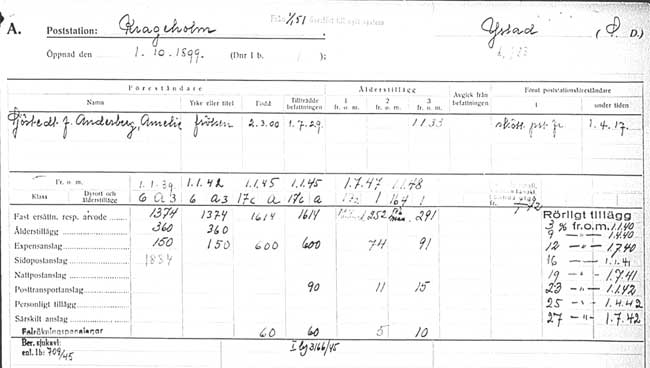 Från 1/1 51 överfört till nytt system
A. Poststation: Krageholm Ystad ( D.)
Öppnad den 1.10.1899. (Dnr I b. );
Föreståndare Ålderstillägg Avgick från befattningen Förut poststationsföreståndare
Namn Yrke eller titel Född Tillträdde befattningen 1 fr. o. m. 2 fr. o. m. 3 fr. o. m. i under tiden
f. Anderberg, Amelie fröken 2.3.00 1.7.29. 1 1 33 1.4.17.
Fr. o. m. 1.1.39 1.1.42 1.1.45 1.1.45 1.7.47 1.1.48
Klass Dyrort och ålderstillägg 6 A 3 6 a 3 17c A 17c A
Fast ersättn. resp. arvode 1374 1374 1614 1614 1252 291
Ålderstillägg 360 360
Expensanslag 150 150 600 600 74 91
Sidopostanslag 1884
Nattpostanslag
Posttransportanslag 90 11 15
Personligt tillägg
Särskilt anslag
Felräkningspengar 60 60 5 10
Rörligt tillägg
3 % fr.o.m. 1.1.40
9 — " — 1.4.40
12 — " — 1.7.40
16 — " — 1.1.41
19 — " — 1.7.41
23 — " — 1.1.42
25 — " — 1.4.42
27 — " — 1.7.42
Ber. sjukavl.
enl. Ib: 709/45
3166/45